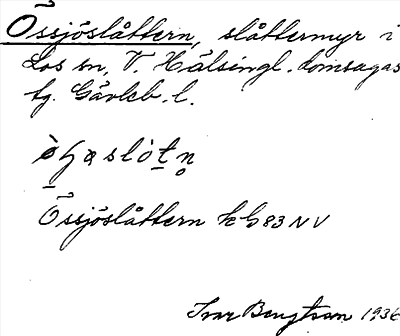 Össjöslåttern, slåttermyr i
Los sn, V. Hälsingl. domsagas
tg. Gävleb. l.
Össjöslåttern k G 83 NV
Ivar Bengtson 1936